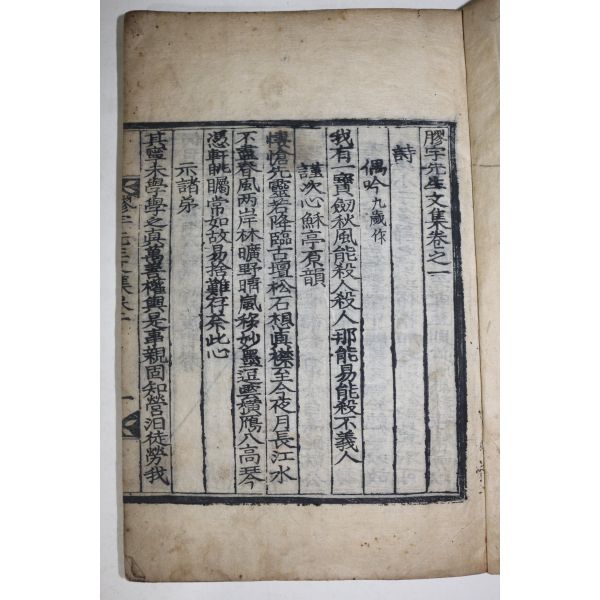 膠宇先生文集卷之一
詩
偶吟九歲作
我有一寶劒秋風能殺人殺人那能易能殺不義人
謹次心穌亭原韻
悽愴先靈若降臨古壇松石想眞襟至今夜月長江水
不盡春風兩岸林曠野晴嵐移妙墨逗雲橫鴈入高琴
憑軒眺矚常如故易捨難存柰此心
示諸弟
其蹙未學學之眞萬善權輿是事親固知營汨徒勞我
膠宇先生文集卷之一